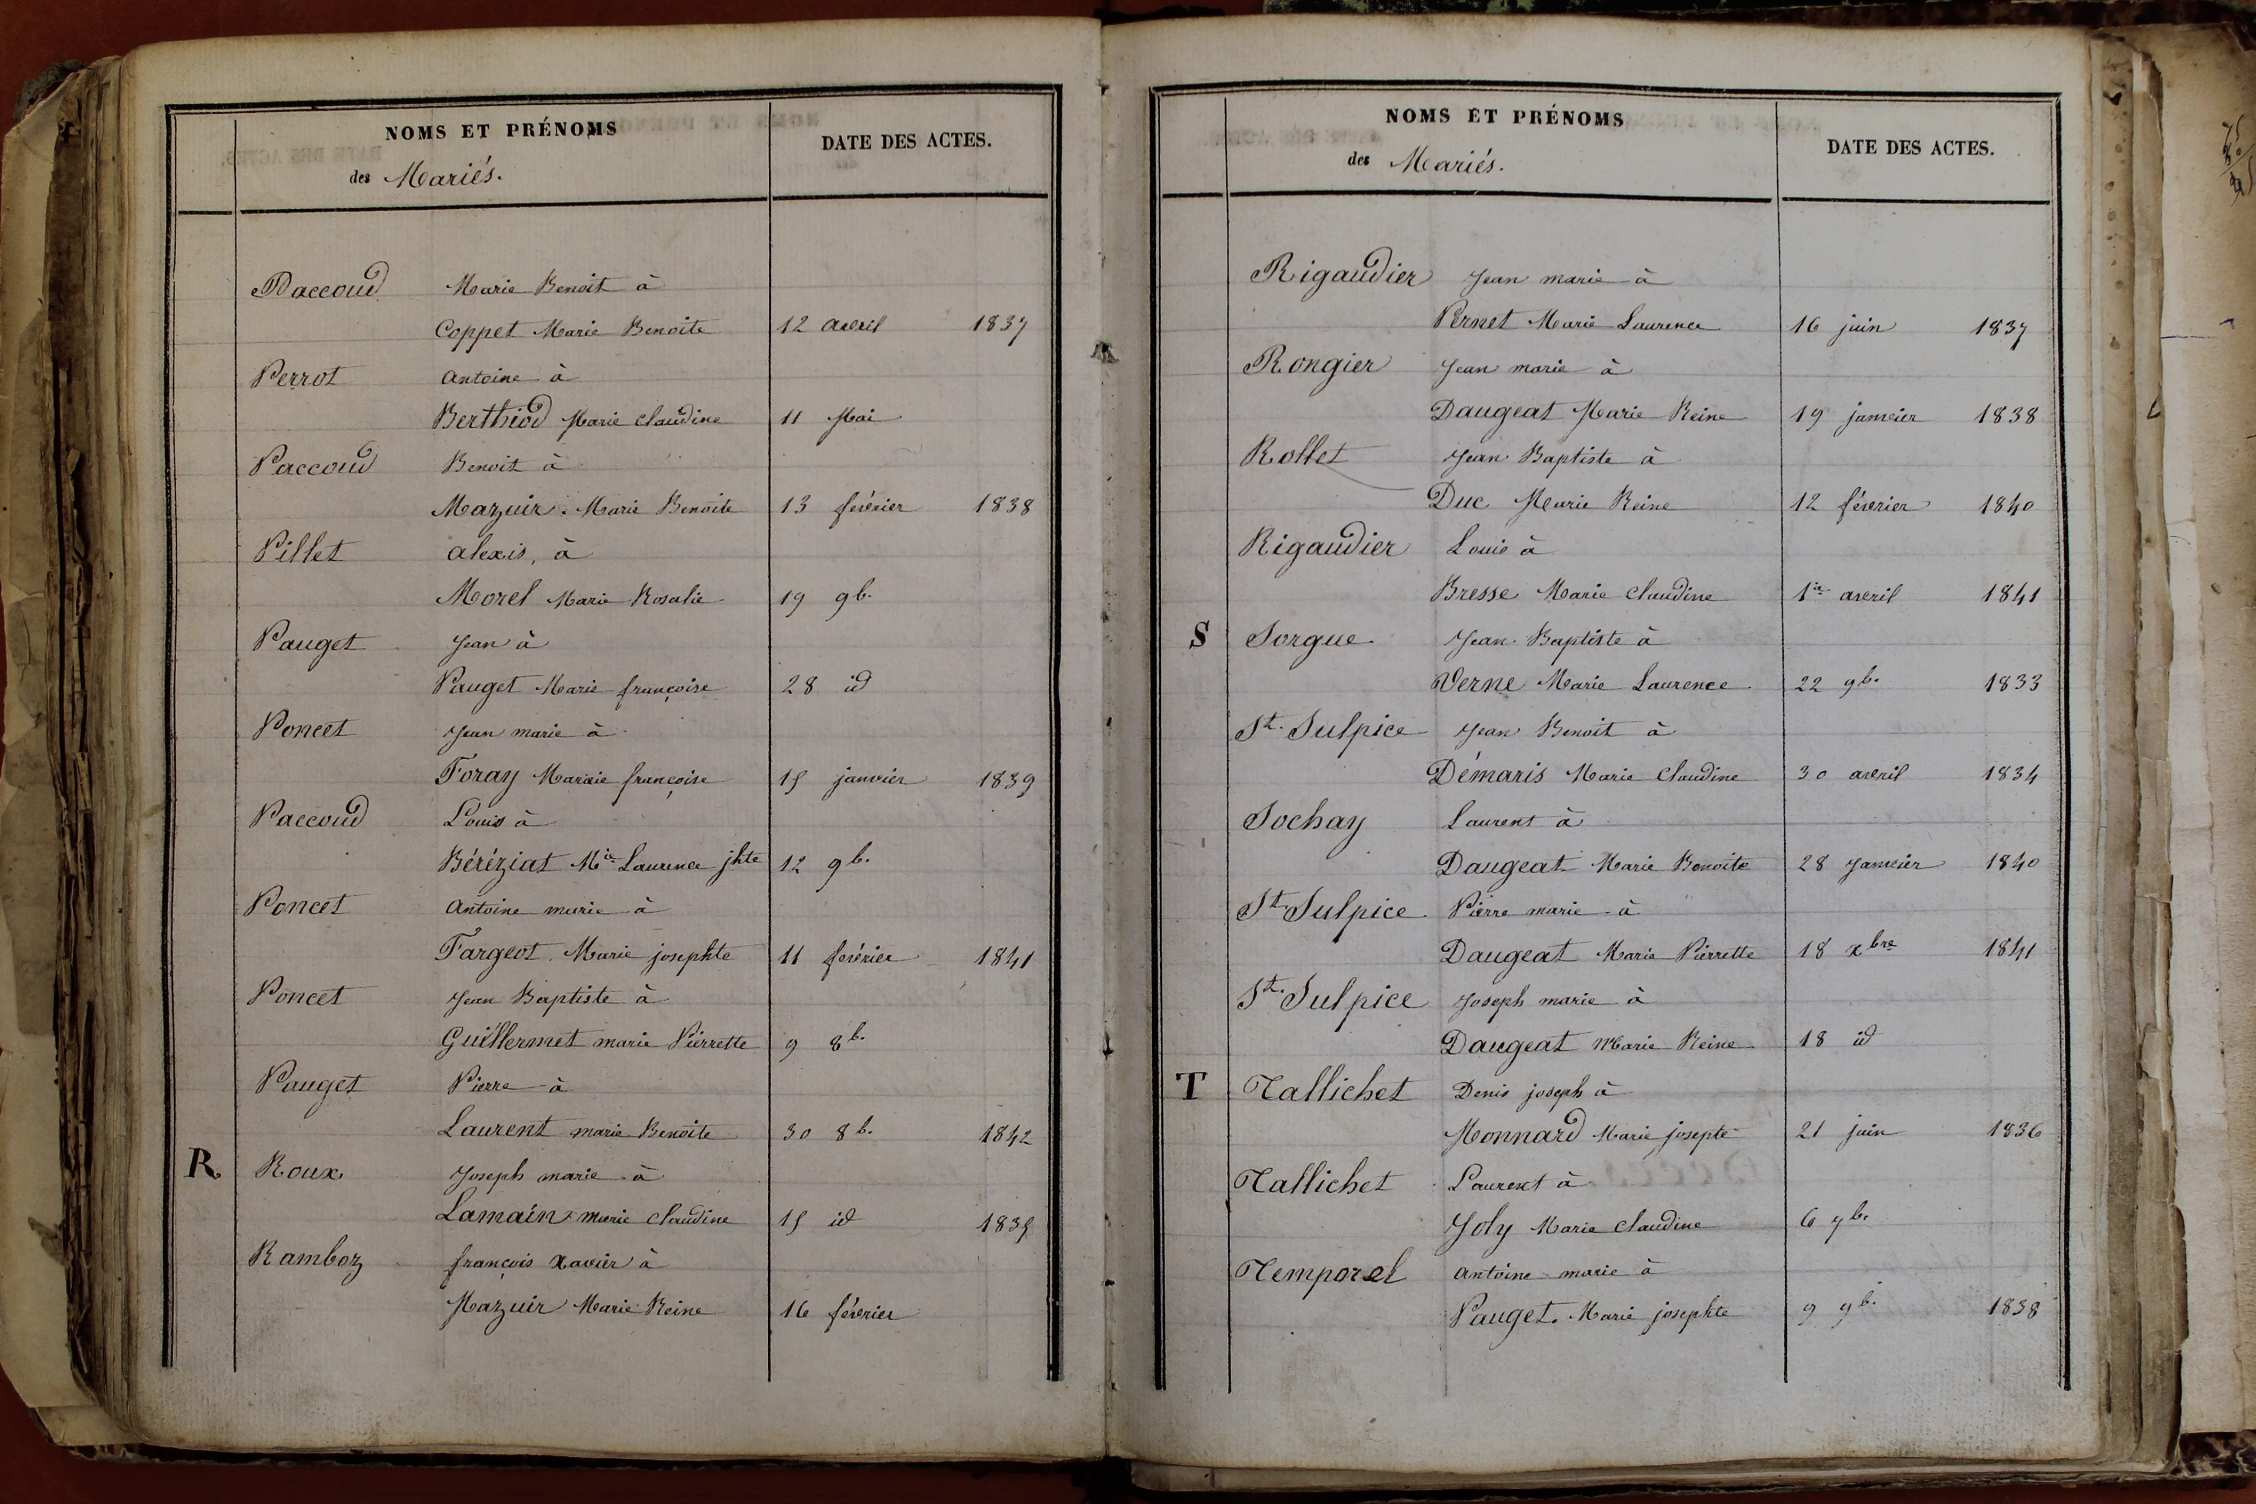 NOMS ET PRÉNOMS
des Mariés.
DATE DES ACTES.
Paccoud Marie Benoit à
Coppet Marie Benoite 12 avril 1837
Perrot antoine à
Berthiod Marie claudine 11 Mai
Paccoud Benoit à
Mazuir Marie Benoite 13 février 1838
Pillet alexis, à
Morel Marie Rosalie 19 9b.
Pauget Jean à
Pauget Marie françoise 28 id
Poncet Jean marie à
Foray Maraie françoise 15 janvier 1839
Paccoud Louis à
Béréziat Mie Laurence jhte 12 9b.
Poncet antoine marie à
Fargeot Marie josephte 11 février 1841
Poncet Jean Baptiste à
Guillermet marie Pierrette 9 8b.
Pauget Pierre à
Laurent marie Benoite 30 8b. 1842
R Roux Joseph marie à
Lamain marie claudine 15 id 1835
Ramboz françois Xavier à
Mazuir Marie Reine 16 février
NOMS ET PRÉNOMS
des Mariés.
DATE DES ACTES.
Rigaudier Jean marie à
Pernet Marie Laurence 16 juin 1837
Rongier Jean marie à
Daugeat Marie Reine 19 janvier 1838
Rollet Jean Baptiste à
Duc Marie Reine 12 février 1840
Rigaudier Louis à
Bresse Marie claudine 1er avril 1841
S Sorgue Jean Baptiste à
Verne Marie Laurence 22 9b. 1833
St. Sulpice Jean Benoit à
Démaris Marie claudine 30 avril 1834
Sochay Laurent à
Daugeat Marie Benoite 28 Janvier 1840
St. Sulpice Pierre marie à
Daugeat Marie Pierrette 18 xbre 1841
St. Sulpice Joseph marie à
Daugeat Marie Reine 18 id
T Tallichet Denis joseph à
Monnard Marie josepte 21 juin 1836
Tallichet Laurent à
Joly Marie claudine 6 7b.
Temporel antoine marie à
Pauget. Marie josephte 9 9b. 1838